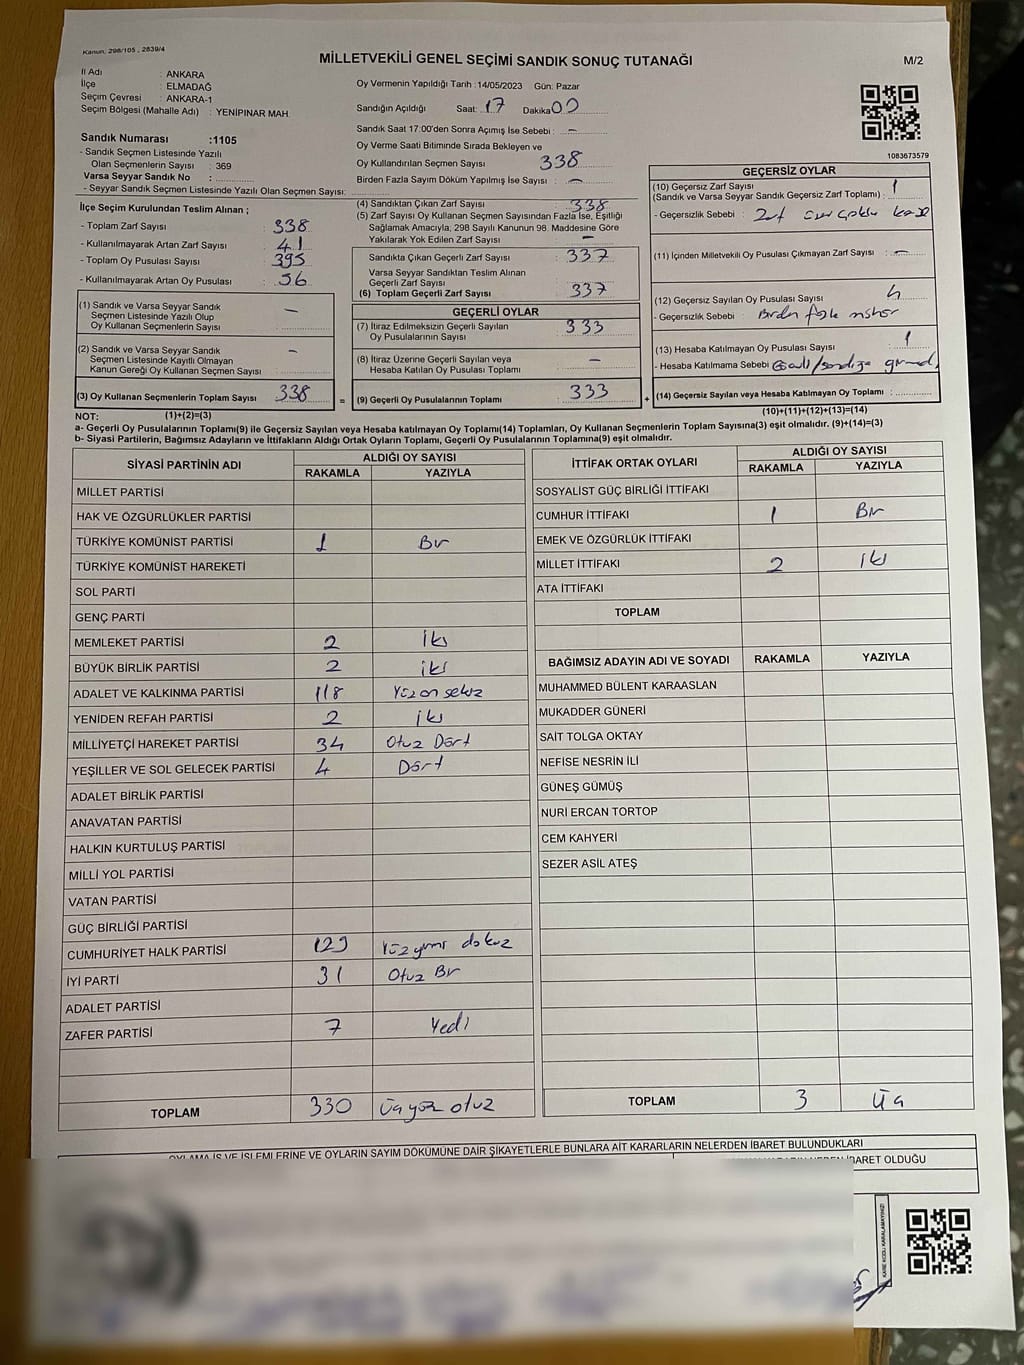 Kanun, 298/105 , 2839/4
MİLLETVEKİLİ GENEL SEÇİMİ SANDIK SONUÇ TUTANAĞI
M/2
İl Adı : ANKARA
İlçe : ELMADAĞ
Seçim Çevresi : ANKARA-1
Seçim Bölgesi (Mahalle Adı) : YENİPINAR MAH
Sandık Numarası :1105
- Sandık Seçmen Listesinde Yazılı
Olan Seçmenlerin Sayısı : 369
Varsa Seyyar Sandık No :
- Seyyar Sandık Seçmen Listesinde Yazılı Olan Seçmen Sayısı:
Oy Vermenin Yapıldığı Tarih :14/05/2023 Gün: Pazar
Sandığın Açıldığı Saat: 17 Dakika 00
Sandık Saat 17:00'den Sonra Açımış İse Sebebi : -
Oy Verme Saati Bitiminde Sırada Bekleyen ve
Oy Kullandırılan Seçmen Sayısı 338
Birden Fazla Sayım Döküm Yapılmış İse Sayısı : -
1083673579
İlçe Seçim Kurulundan Teslim Alınan ;
- Toplam Zarf Sayısı : 338
- Kullanılmayarak Artan Zarf Sayısı : 41
- Toplam Oy Pusulası Sayısı : 395
- Kullanılmayarak Artan Oy Pusulası : 56
(1) Sandık ve Varsa Seyyar Sandık
Seçmen Listesinde Yazılı Olup
Oy Kullanan Seçmenlerin Sayısı : -
(2) Sandık ve Varsa Seyyar Sandık
Seçmen Listesinde Kayıtlı Olmayan
Kanun Gereği Oy Kullanan Seçmen Sayısı : -
(3) Oy Kullanan Seçmenlerin Toplam Sayısı : 338
(4) Sandıktan Çıkan Zarf Sayısı : 338
(5) Zarf Sayısı Oy Kullanan Seçmen Sayısından Fazla İse, Eşitliği
Sağlamak Amacıyla, 298 Sayılı Kanunun 98. Maddesine Göre
Yakılarak Yok Edilen Zarf Sayısı : -
Sandıkta Çıkan Geçerli Zarf Sayısı : 337
Varsa Seyyar Sandıktan Teslim Alınan
Geçerli Zarf Sayısı :
(6) Toplam Geçerli Zarf Sayısı : 337
GEÇERLİ OYLAR
(7) İtiraz Edilmeksizin Geçerli Sayılan
Oy Pusulalarının Sayısı : 333
(8) İtiraz Üzerine Geçerli Sayılan veya
Hesaba Katılan Oy Pusulası Toplamı : -
= (9) Geçerli Oy Pusulalarının Toplamı : 333 +
GEÇERSİZ OYLAR
(10) Geçersiz Zarf Sayısı : 1
(Sandık ve Varsa Seyyar Sandık Geçersiz Zarf Toplamı) :
- Geçersizlik Sebebi : Zarf
(11) İçinden Milletvekili Oy Pusulası Çıkmayan Zarf Sayısı : -
(12) Geçersiz Sayılan Oy Pusulası Sayısı : 4
- Geçersizlik Sebebi : Birden fazla mühür
(13) Hesaba Katılmayan Oy Pusulası Sayısı : 1
- Hesaba Katılmama Sebebi :
(14) Geçersiz Sayılan veya Hesaba Katılmayan Oy Toplamı :
NOT: (1)+(2)=(3)
(10)+(11)+(12)+(13)=(14)
a- Geçerli Oy Pusulasının Toplamı(9) ile Geçersiz Sayılan veya Hesaba katılmayan Oy Toplamı(14) Toplamları, Oy Kullanan Seçmenlerin Toplam Sayısına(3) eşit olmalıdır. (9)+(14)=(3)
b- Siyasi Partilerin, Bağımsız Adayların ve İttifakların Aldığı Ortak Oyların Toplamı, Geçerli Oy Pusulalarının Toplamına(9) eşit olmalıdır.
SİYASİ PARTİNİN ADI ALDIĞI OY SAYISI
RAKAMLA YAZIYLA
MİLLET PARTİSİ
HAK VE ÖZGÜRLÜKLER PARTİSİ
TÜRKİYE KOMÜNİST PARTİSİ 1 Bir
TÜRKİYE KOMÜNİST HAREKETİ
SOL PARTİ
GENÇ PARTİ
MEMLEKET PARTİSİ 2 iki
BÜYÜK BİRLİK PARTİSİ 2 iki
ADALET VE KALKINMA PARTİSİ 118 Yüz on sekiz
YENİDEN REFAH PARTİSİ 2 iki
MİLLİYETÇİ HAREKET PARTİSİ 34 Otuz Dört
YEŞİLLER VE SOL GELECEK PARTİSİ 4 Dört
ADALET BİRLİK PARTİSİ
ANAVATAN PARTİSİ
HALKIN KURTULUŞ PARTİSİ
MİLLİ YOL PARTİSİ
VATAN PARTİSİ
GÜÇ BİRLİĞİ PARTİSİ
CUMHURİYET HALK PARTİSİ 129 Yüz yirmi dokuz
İYİ PARTİ 31 Otuz Bir
ADALET PARTİSİ
ZAFER PARTİSİ 7 Yedi
TOPLAM 330 Üçyüz otuz
İTTİFAK ORTAK OYLARI ALDIĞI OY SAYISI
RAKAMLA YAZIYLA
SOSYALİST GÜÇ BİRLİĞİ İTTİFAKI
CUMHUR İTTİFAKI 1 Bir
EMEK VE ÖZGÜRLÜK İTTİFAKI
MİLLET İTTİFAKI 2 iki
ATA İTTİFAKI
TOPLAM
BAĞIMSIZ ADAYIN ADI VE SOYADI RAKAMLA YAZIYLA
MUHAMMED BÜLENT KARAASLAN
MUKADDER GÜNERİ
SAİT TOLGA OKTAY
NEFİSE NESRİN İLİ
GÜNEŞ GÜMÜŞ
NURİ ERCAN TORTOP
CEM KAHYERİ
SEZER ASİL ATEŞ
TOPLAM 3 Üç
OYLAMA İŞ VE İŞLEMLERİNE VE OYLARIN SAYIM DÖKÜMÜNE DAİR ŞİKAYETLERLE BUNLARA AİT KARARLARIN NELERDEN İBARET BULUNDUKLARI
İBARET OLDUĞU
KARE KODU KARALAMAYINIZ!